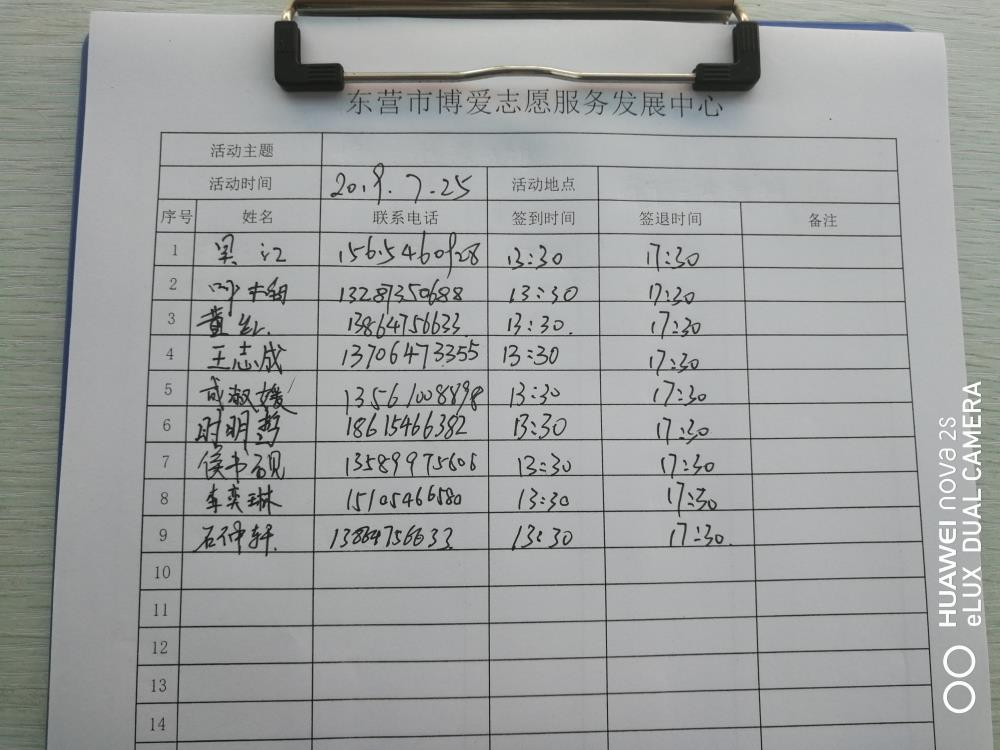 东营市博爱志愿服务发展中心
活动主题
活动时间 2019.7.25 活动地点
序号 姓名 联系电话 签到时间 签退时间 备注
1 吴江 15615460928 13:30 17:30
2 13287350688 13:30 17:30
3 黄红 13864756633 13:30 17:30
4 王志成 13706473355 13:30 17:30
5 成淑媛 13561008898 13:30 17:30
6 时明哲 18615466382 13:30 17:30
7 侯书砚 13589975606 13:30 17:30
8 李奕琳 15105466580 13:30 17:30
9 石钟轩 13864756633 13:30 17:30
10
11
12
13
14
HUAWEI nova 2S
eLUX DUAL CAMERA